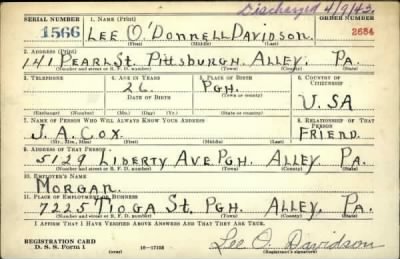 Discharged 4/9/43.
SERIAL NUMBER 1. NAME (Print) ORDER NUMBER
1566 LEE O'DONNELL DAVIDSON. 2684
(First) (Middle) (Last)
2. ADDRESS (Print)
141 PEARL ST. PITTSBURGH. ALLEY. PA.
(Number and street or R. F. D. number) (Town) (County) (State)
3. TELEPHONE 4. AGE IN YEARS 5. PLACE OF BIRTH 6. COUNTRY OF CITIZENSHIP
26. PGH.
DATE OF BIRTH (Town or county)
PA. U.S.A
(Exchange) (Number) (Mo.) (Day) (Yr.) (State or country)
7. NAME OF PERSON WHO WILL ALWAYS KNOW YOUR ADDRESS 8. RELATIONSHIP OF THAT PERSON
J. A. COX. FRIEND.
(Mr., Mrs., Miss) (First) (Middle) (Last)
9. ADDRESS OF THAT PERSON
5129 LIBERTY AVE. PGH. ALLEY. PA.
(Number and street or R. F. D. number) (Town) (County) (State)
10. EMPLOYER'S NAME
MORGAN.
11. PLACE OF EMPLOYMENT OR BUSINESS
7225 TIOGA ST. PGH. ALLEY. PA.
(Number and street or R. F. D. number) (Town) (County) (State)
I AFFIRM THAT I HAVE VERIFIED ABOVE ANSWERS AND THAT THEY ARE TRUE.
REGISTRATION CARD
D. S. S. Form 1 16-17105 Lee O. Davidson
(Registrant's signature)